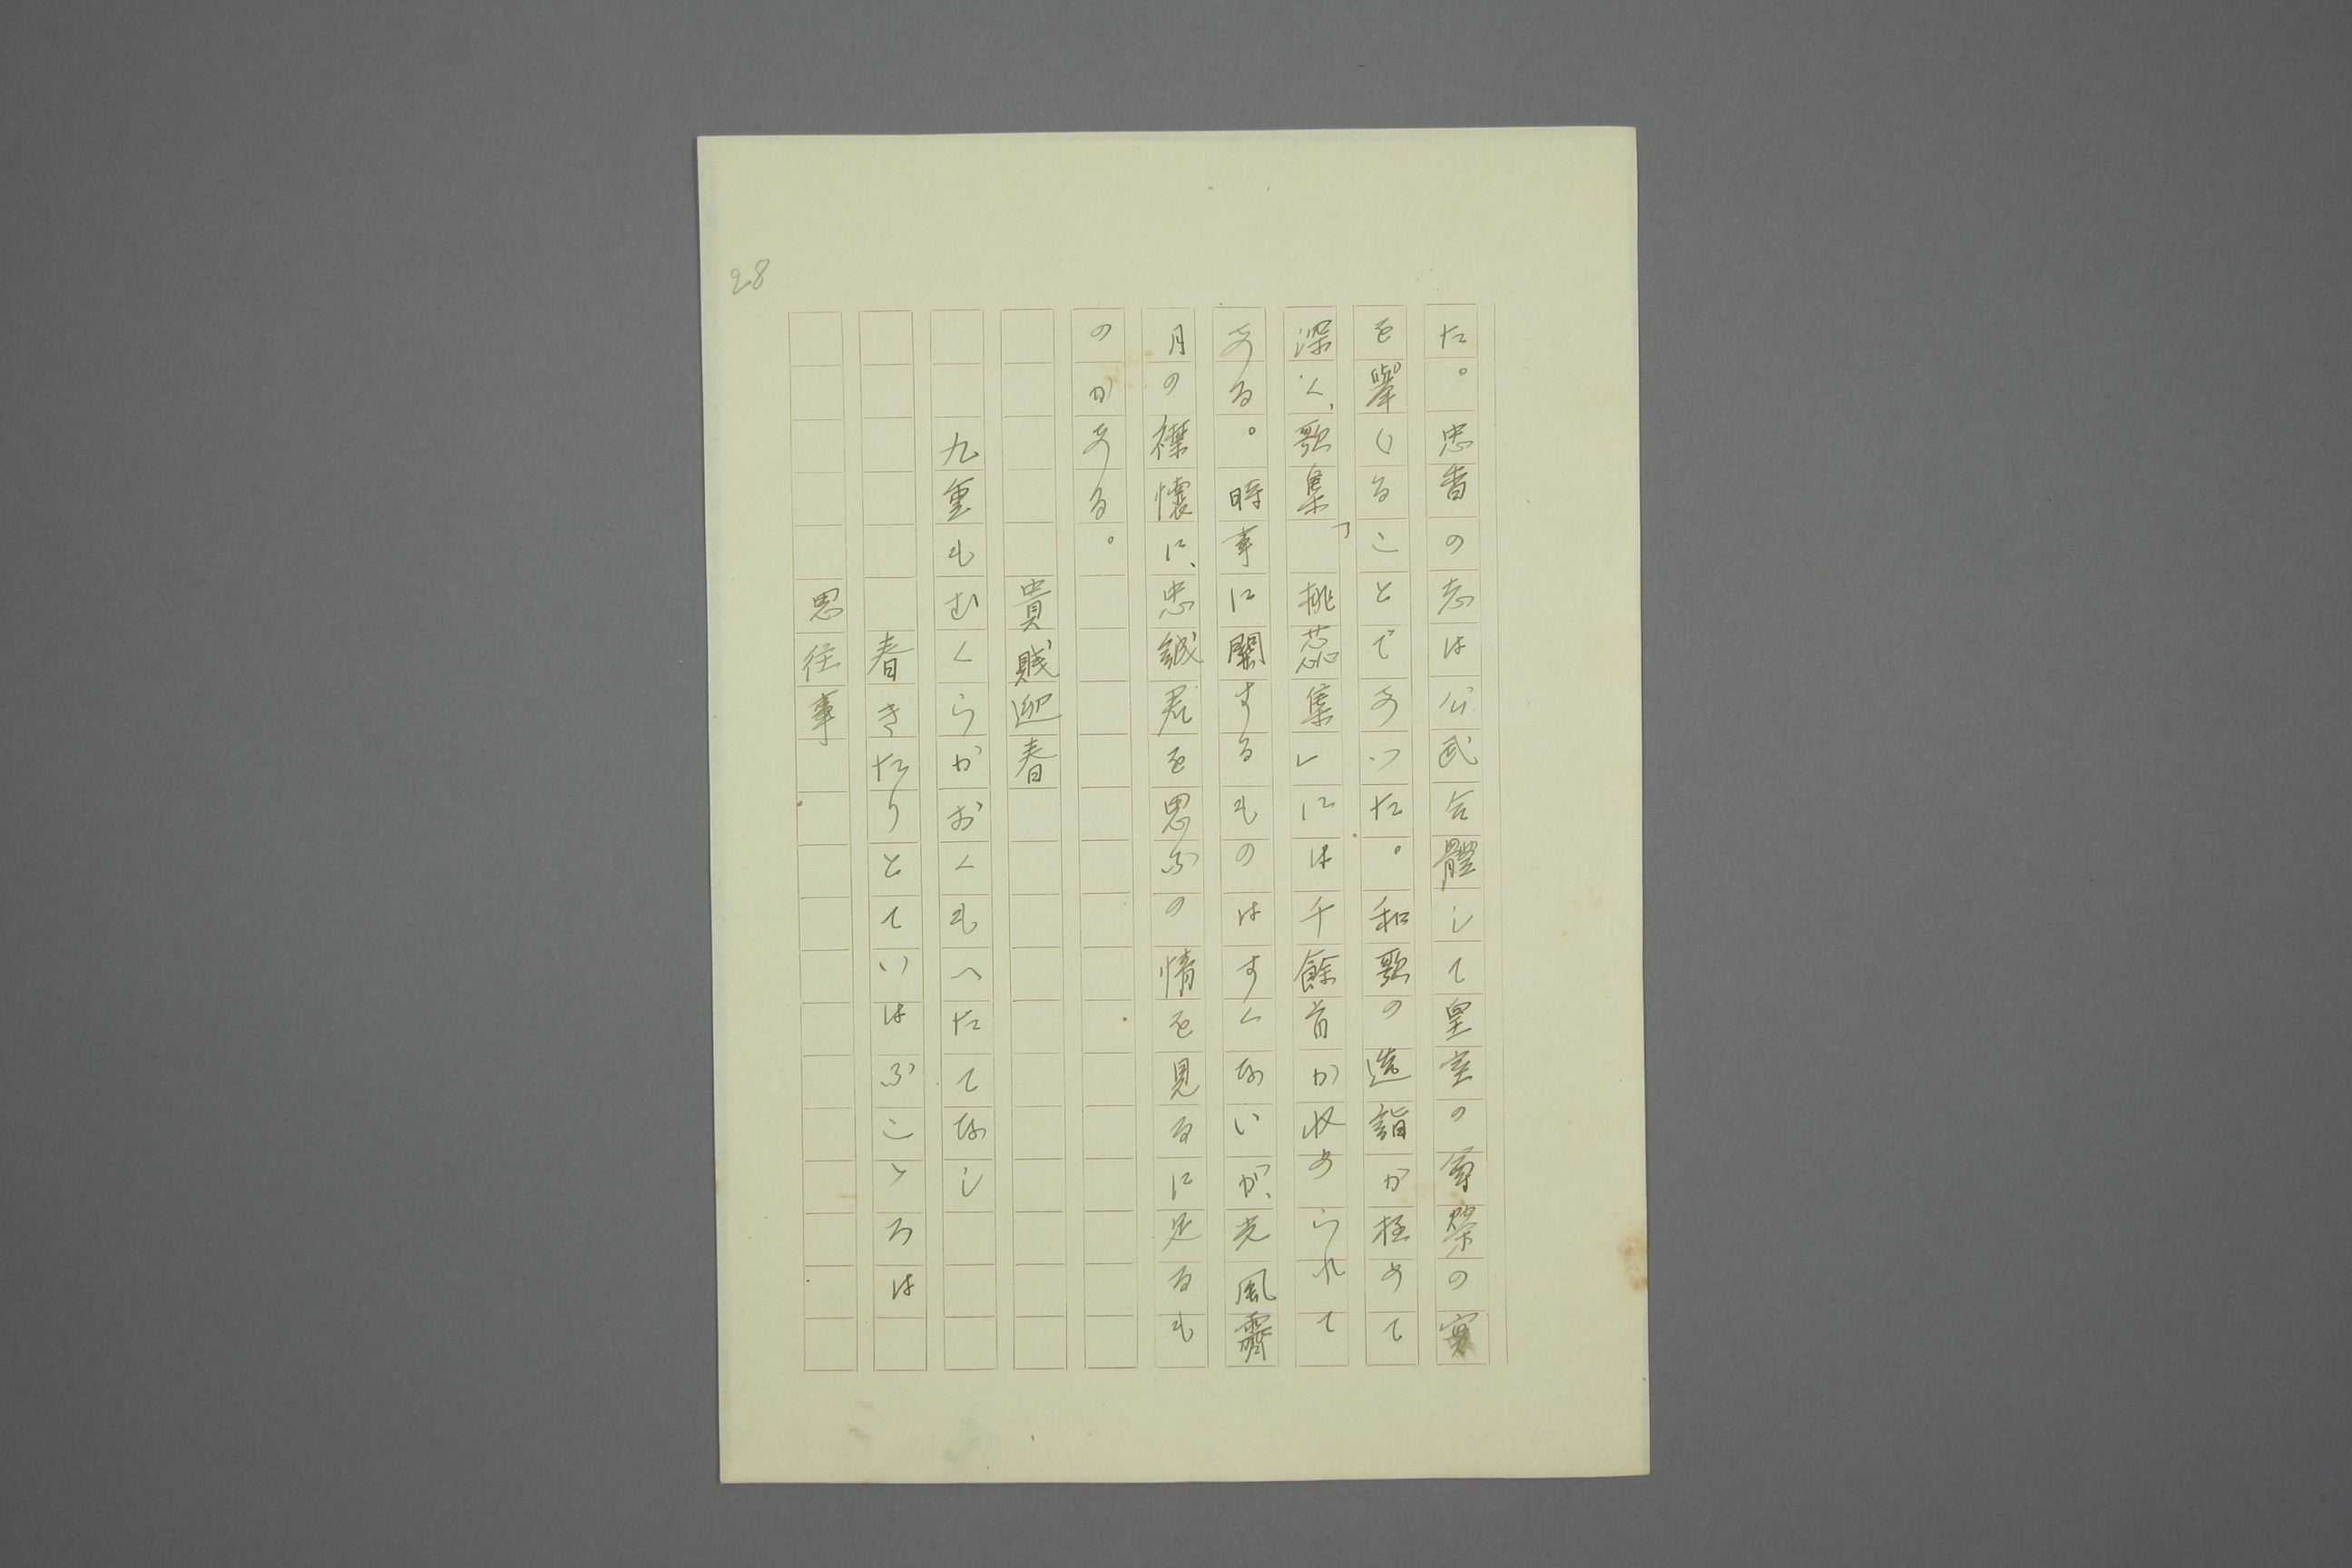 た。忠香の志は公武合體して皇室の尊榮の實
を擧げることであつた。和歌の造詣が極めて
深く、歌集「桃蕊集」には千餘首が收められて
ある。時事に關するものはすくないが、光風霽
月の襟懷に、忠誠君を思ふの情を見るに足るも
のがある。
貴賤迎春
九重もむぐらがおくもへだてなし
春きたりとていはふこゝろは
思往事
28